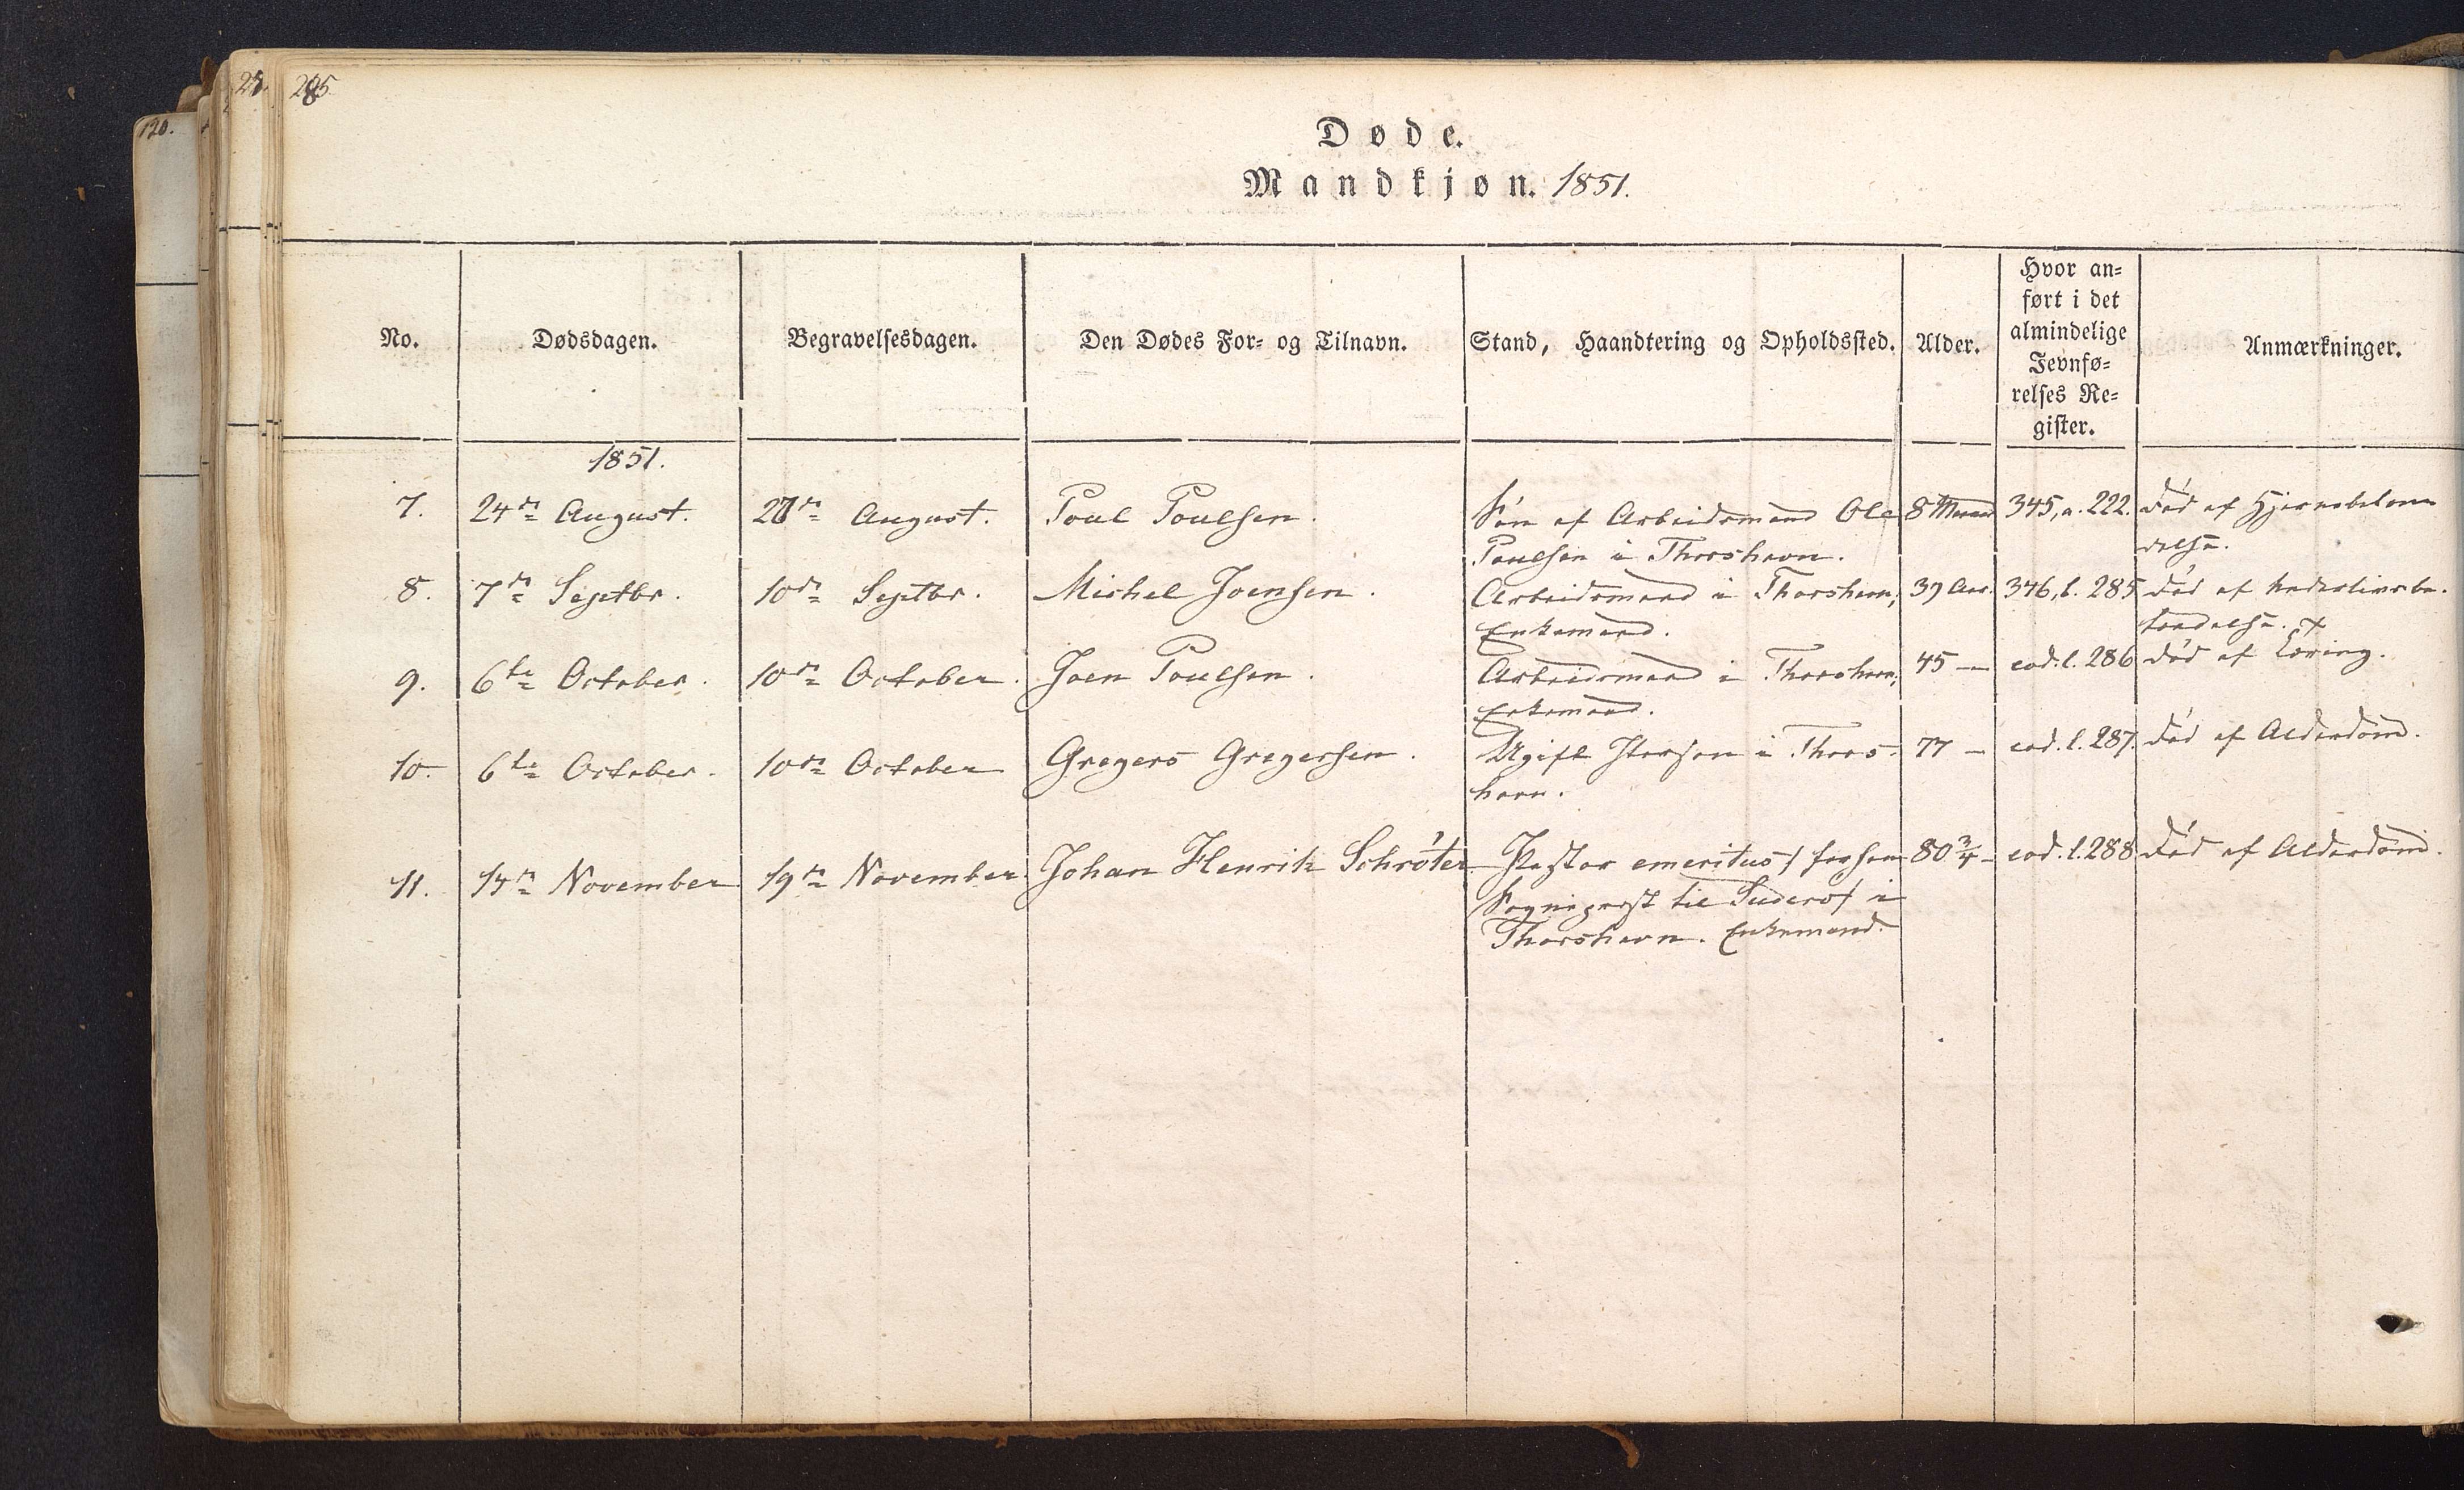 120.
285
Døde.
Mandkjøn. 1851.
No. Dødsdagen. Begravelsesdagen. Den Dødes For- og Tilnavn. Stand, Haandtering og Opholdssted. Alder. Hvor an=
ført i det
almindelige
Jevnfø=
relses Re=
gister. Anmærkninger.
1851.
7. 24de August. 27de August. Poul Poulsen. Søn af Arbeidsmand Ole 8 Maaned 345, a. 222. Død af Hjernebetæn
Poulsen i Thorshavn. delse.
8. 7de Septbr. 10de Septbr. Michel Joensen. Arbeidsmand i Thorshavn, 39 Aar. 346, l. 285 Død af Underlivsbe-
Enkemand. tændelse. +
9. 6te October. 10de October. Joen Poulsen. Arbeidsmand i Thorshavn, 45 — eod. l. 286 Død af Tæring.
Enkemand.
10. 6te October. 10de October Gregers Gregersen. Ugift Person i Thors- 77 — eod. l. 287. Død af Alderdom.
havn.
11. 14de November 19de November. Johan Henrik Schrøter Pastor emeritus / forhen 80 3/4 — eod. l. 288 Død af Alderdom.
Sognepræst til Suderø / i
Thorshavn. Enkemand.